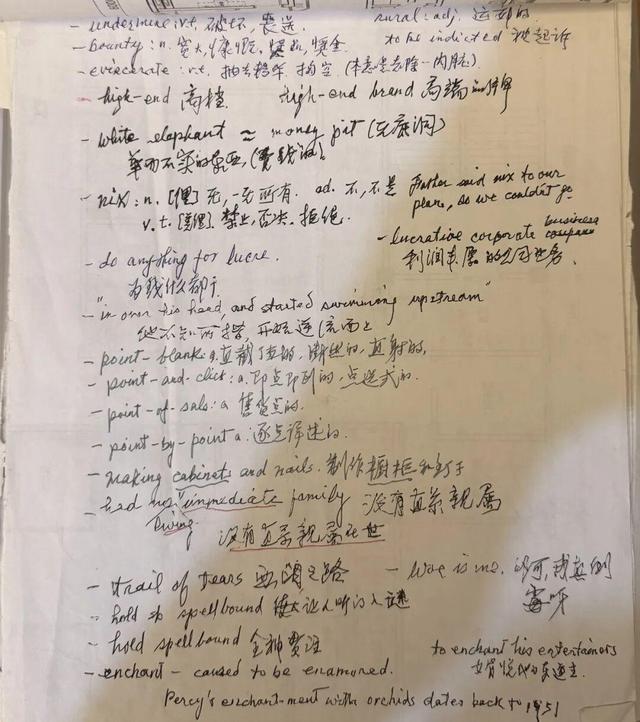 - undermine: vt. 破坏
rural: adj.
- bounty: n. 宽大, 慷慨, 奖金
to be indicted 被起诉
- eviscerate: v.t. 抽去
- high-end 高档. high-end brand 高端
- white elephant ≈ money pit (无底洞)
华而不实的东西, (费钱的)
- nix: n. [俚] 无, 一无所有. ad. 不, 不是 Father said nix to our
v.t. [美俚] 禁止, 否决. 拒绝. plans, so we couldn't go.
- lucrative corporate business
利润丰厚的公司业务.
- do anything for lucre.
为钱什么都干
- "in over his head, and started swimming upstream"
他不知所措, 开始逆流而上
- point-blank: a. 直截了当的, 直射的,
- point-and-click: a. 即点即到的, 点选式的.
- point-of-sale: a 售货点的.
- point-by-point a. 逐点详述的.
- making cabinets and nails. 制作橱柜和钉子
- had no "immediate family 没有直系亲属
living
没有直系亲属在世
- trail of tears 血泪之路
- woe is me. 我真倒
霉呀
- hold spellbound
- hold spellbound 全神贯注
to enchant his entertainers
- enchant - caused to be enamored.
Percy's enchantment with orchids dates back to 1951